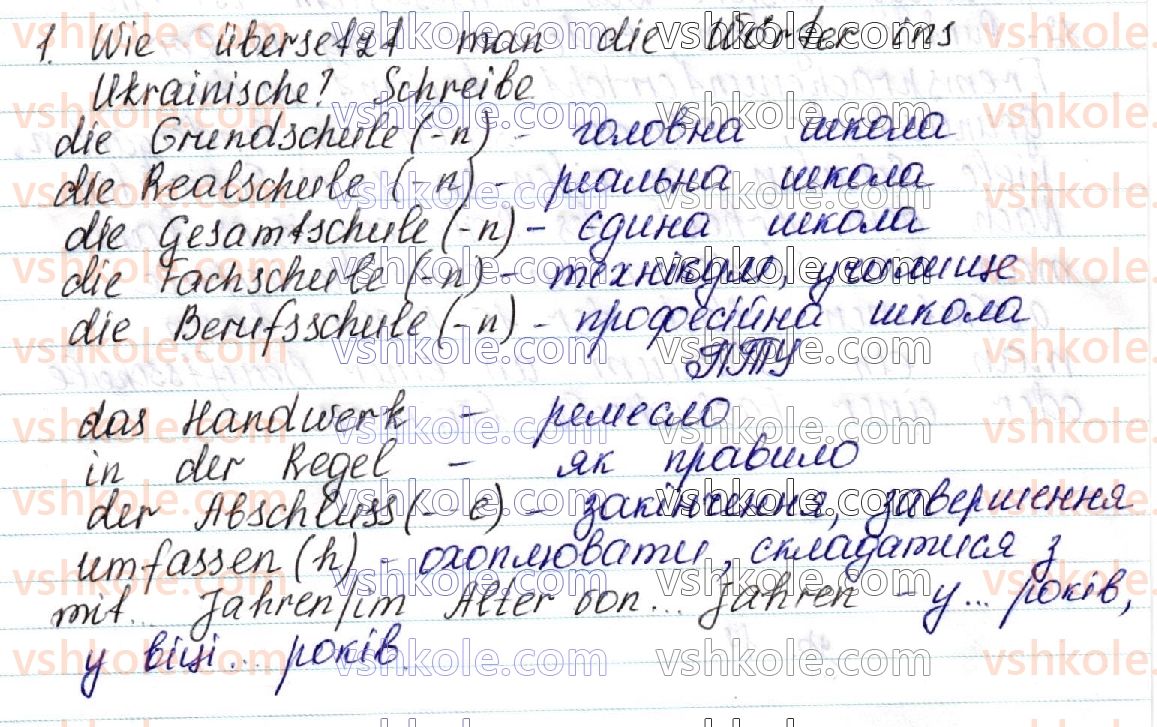 1. Wie übersetzt man die Wörter ins
Ukrainische? Schreibe
die Grundschule (-n) - головна школа
die Realschule (-n) - реальна школа
die Gesamtschule (-n) - єдина школа
die Fachschule (-n) - технікум, училище
die Berufsschule (-n) - професійна школа
ПТУ
das Handwerk - ремесло
in der Regel - як правило
der Abschluss (-e) - закінчення, завершення
umfassen (h) - охоплювати, складатися з
mit... Jahren/im Alter von... Jahren - у... років,
у віці... років.